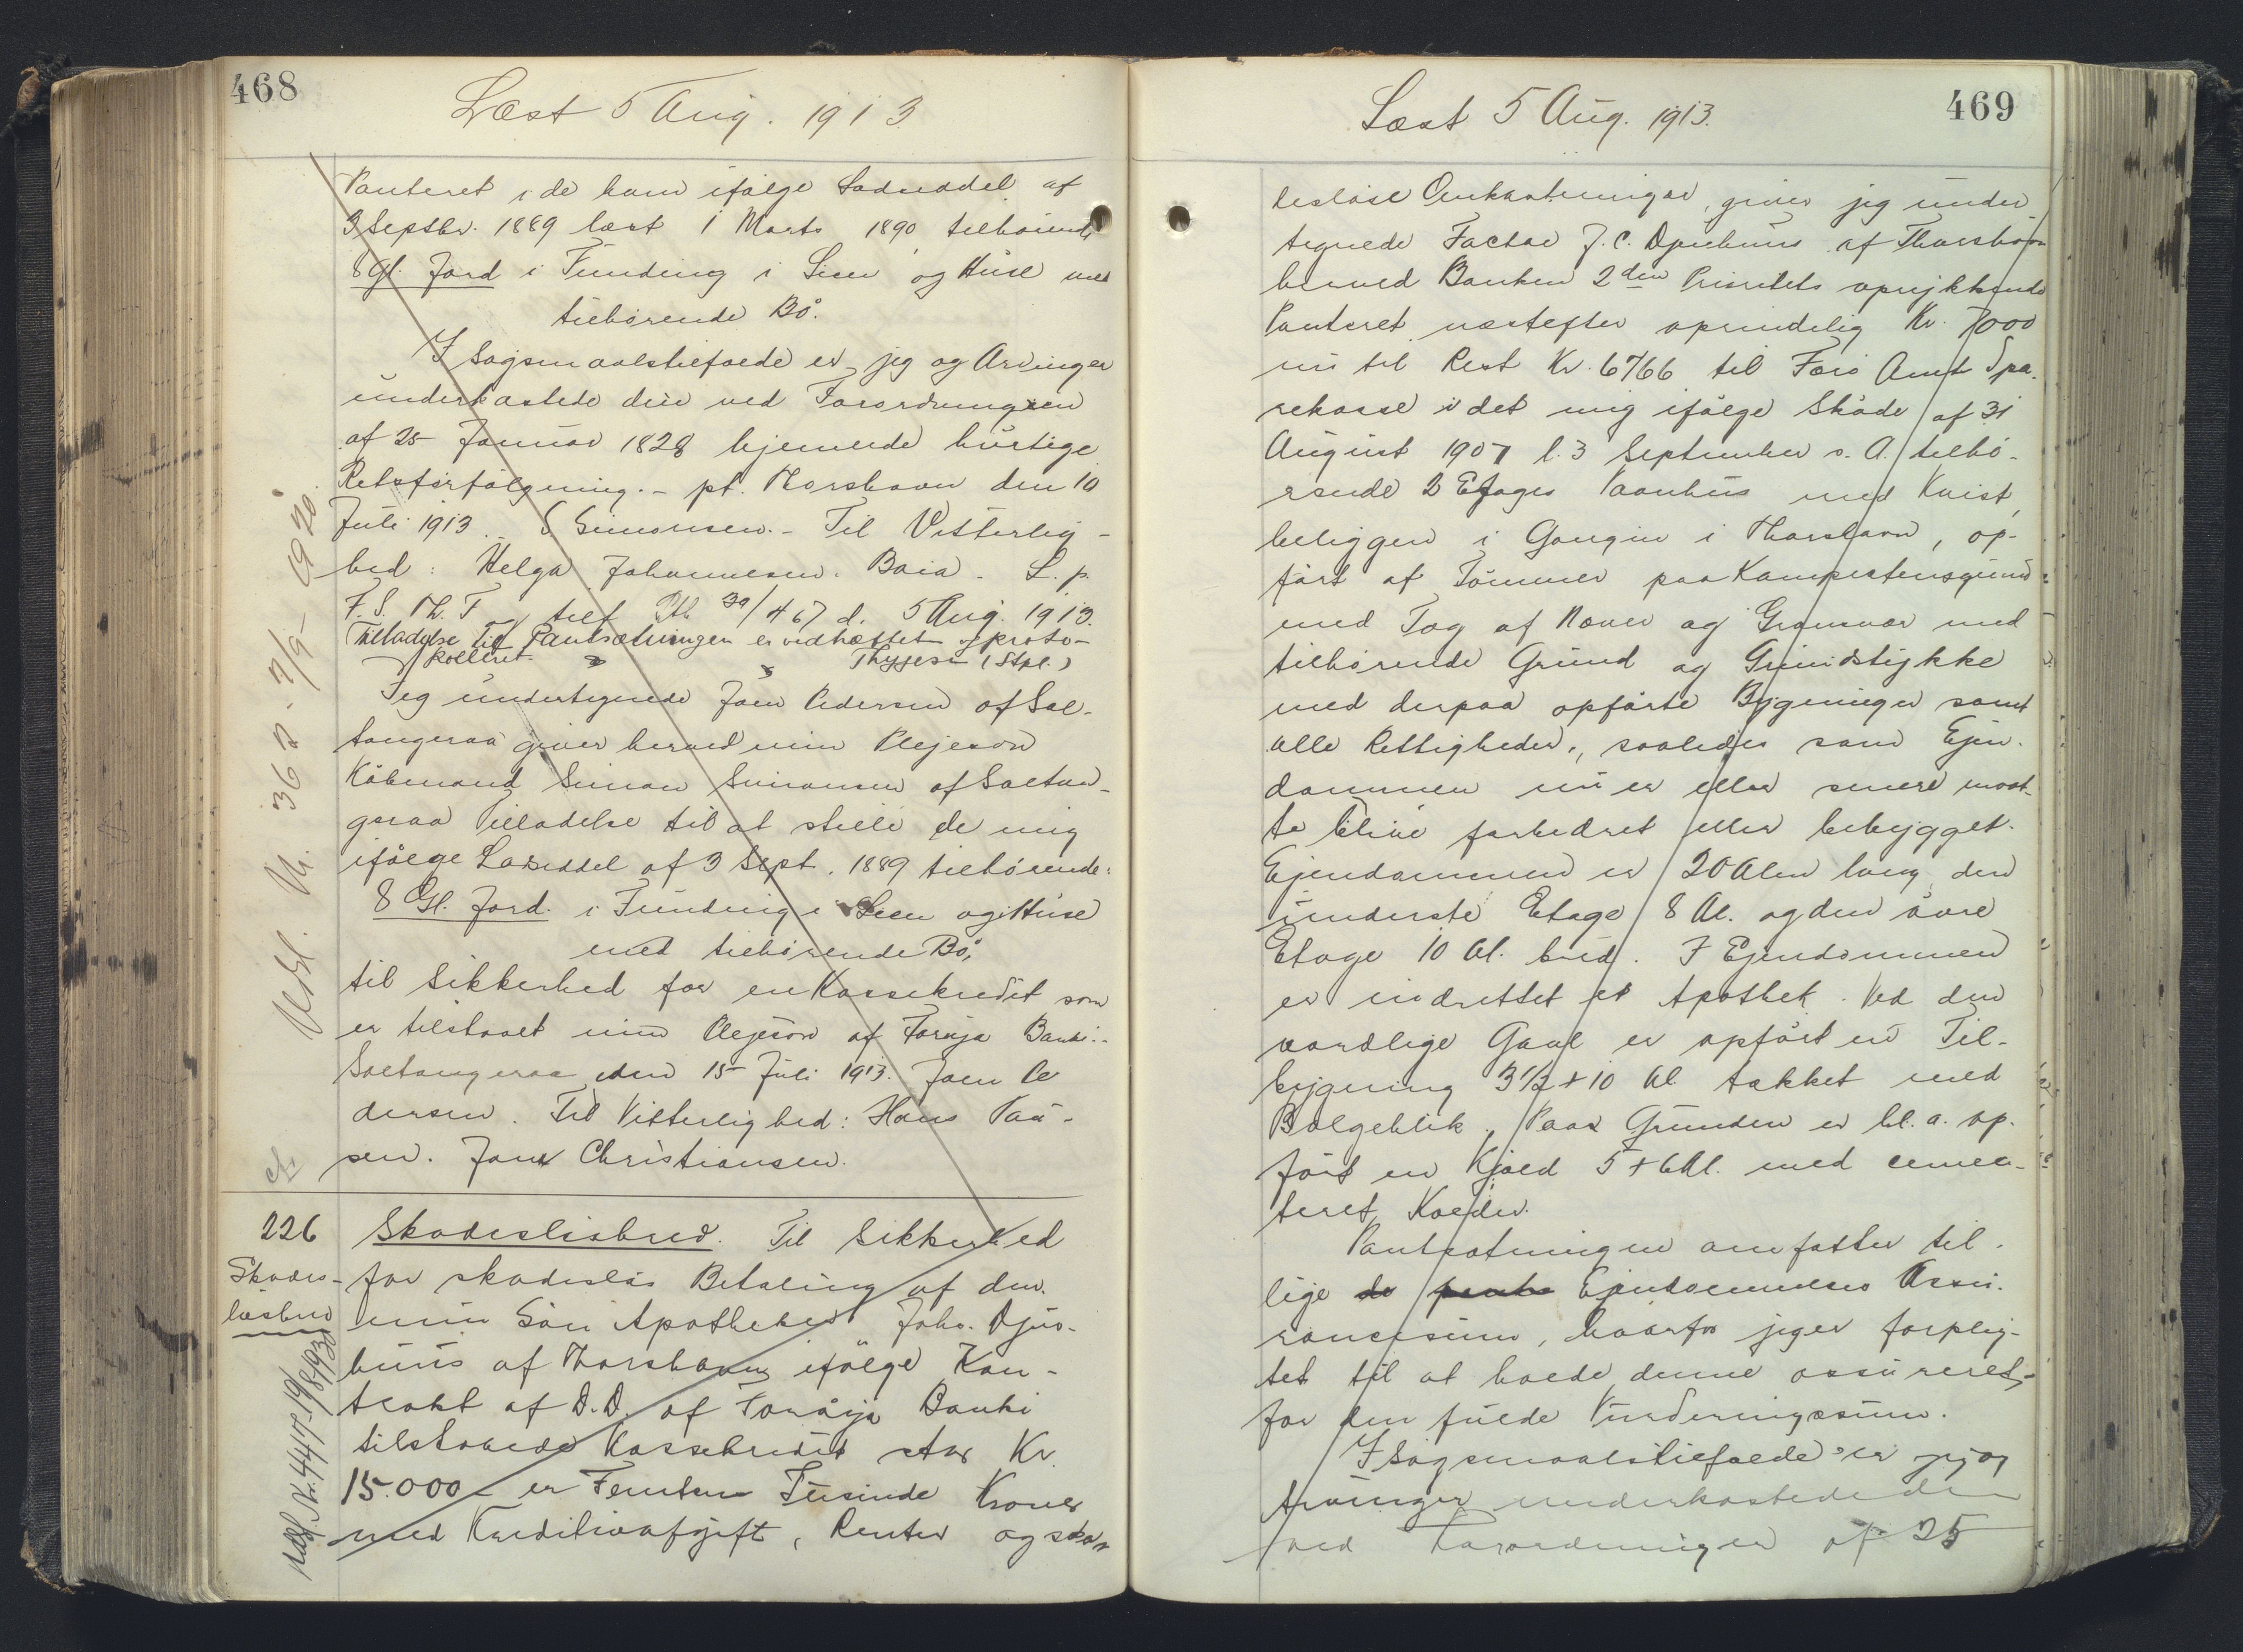 468
Læst 5 Aug. 1913
Panteret i de ham ifølge Ladseddel af
3 Septbr. 1889 læst 1 Marts 1890 tilhørende
8 Gl. Jord i Funding i Leen og Huse med
tilhørende Bø.
I Søgsmaalstilfælde er jeg og Arvinger
underkastede den ved Forordningen
af 25 Januar 1828 hjemlede hurtige
Retsforfølgning. - pt. Thorshavn den 10
Juli 1913. S. Simonsen. - Til Vitterlig-
hed: Helga Johannesen. Baia. L. p.
F. S. Th. F. tilf Ptb 30/467 d. 5 Aug. 1913.
Tilladelse til Pantsætningen er vedhæftet og proto-
kolleret. Thygesen (Stpl.)
Jeg undertegnede Joen Pedersen af Sal-
tangeraa giver herved min Plejesøn
Købmand Simon Simonsen af Saltan-
geraa Tilladelse til at stille de mig
ifølge Ladseddel af 3 Sept. 1889 tilhørende:
8 Gl. Jord. i Funding i Leen og Huse
med tilhørende Bø,
til Sikkerhed for en Kassekredit som
er tilstaaet min Plejesøn af Førøja Banki.-
Saltangeraa den 15 Juli 1913. Joen Pe
dersen. Til Vitterlighed: Hans Pau-
sen. Jens Christiansen.
Udsl. N. 362 - 2/9 - 1920
226
Skades-
løsbrev
Udsl. N. 447-19/8 1930
Skadesløsbrev. Til Sikkerhed
for skadesløs Betaling af den
min Søn Apotheker Johs. Djur-
huus af Thorshavn ifølge Kon-
trakt af D.D. af Førøja Banki
tilstaaede Kassekredit stor Kr.
15.000 - er Femten Tusinde Kroner
med Kreditivafgift, Renter og ska-
469
Læst 5 Aug. 1913.
desløse Omkostninger, giver jeg under
tegnede Factor J. C. Djurhuus af Thorshavn
herved Banken 2den Prioritets oprykkende
Panteret næstefter oprindelig Kr. 7000
nu til Rest Kr. 6766 til Færø Amts Spa-
rekasse i det mig ifølge Skøde af 31
August 1907 l. 3 September s. A. tilhø-
rende 2 Etages Vaanhus med Kvist,
beliggen i Gongin i Thorshavn, op-
ført af Tømmer paa Kampestensgrund
med Tag af Næver og Grønsvær med
tilhørende Grund og Grundstykke
med derpaa opførte Bygninger samt
alle Rettigheder, saaledes som Ejen-
dommen nu er eller senere maat-
te blive forbedret eller bebygget.
Ejendommen er 20 Alen lang den
underste Etage 8 Al. og den øvre
Etage 10 Al. bred. I Ejendommen
er indrettet et Apothek. Ved den
nordlige Gavl er opført en Til-
bygning 3 1/2 + 10 Al. takket med
Bølgeblik. Paa Grunden er bl. a. op-
ført en Kjæld 5 + 6 Al. med cemen-
teret Kælder.
Pantsætningen omfatter til-
lige de Ejendommenes Assu-
rancesum, hvorfor jeg er forplig-
tet til at holde denne assureret
for den fulde Vurderingssum.
I Søgsmaalstilfælde er jeg og
Arvinger underkastede den
ved Forordningen af 25